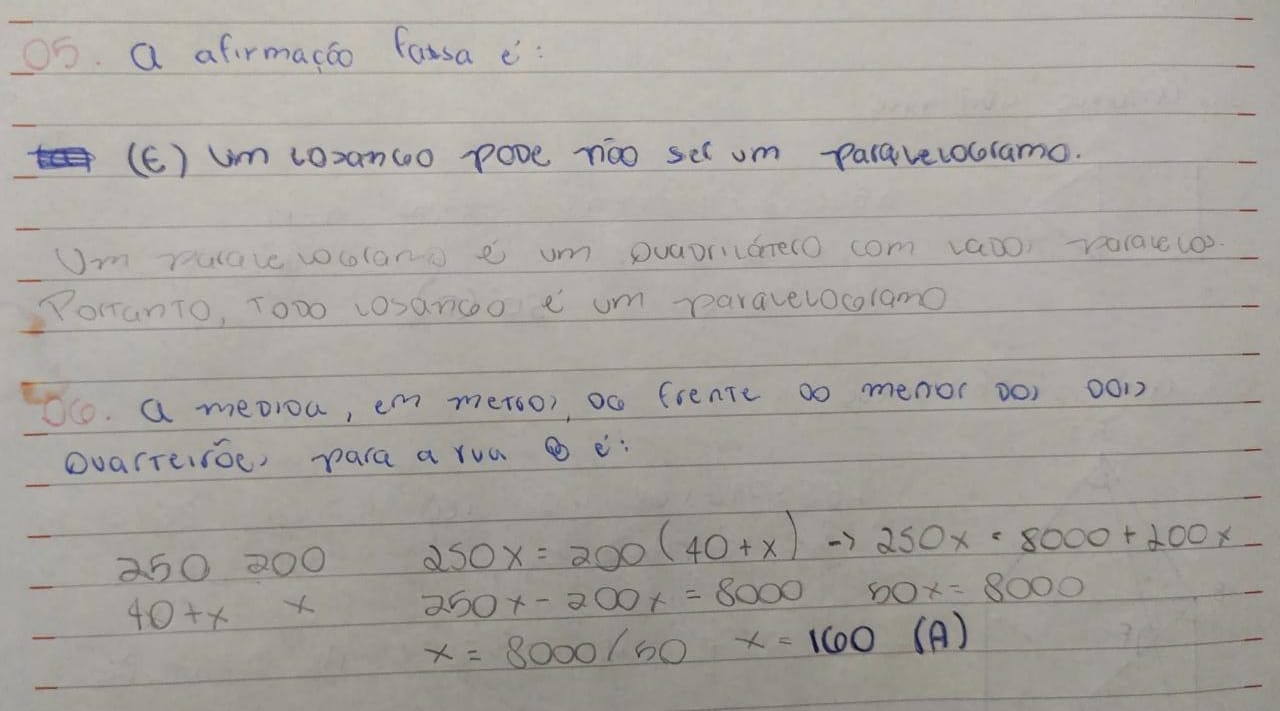 05. A afirmação falsa é:
(E) um losango pode não ser um paralelogramo.
Um paralelogramo é um quadrilátero com lados paralelos.
Portanto, todo losango é um paralelogramo
06. A medida, em metros, de frente do menor dos dois
quarteirões para a rua B é:
250 200 250x = 200(40+x) -> 250x = 8000 + 200x
40+x x 250x - 200x = 8000 50x = 8000
x = 8000/50 x = 160 (A)